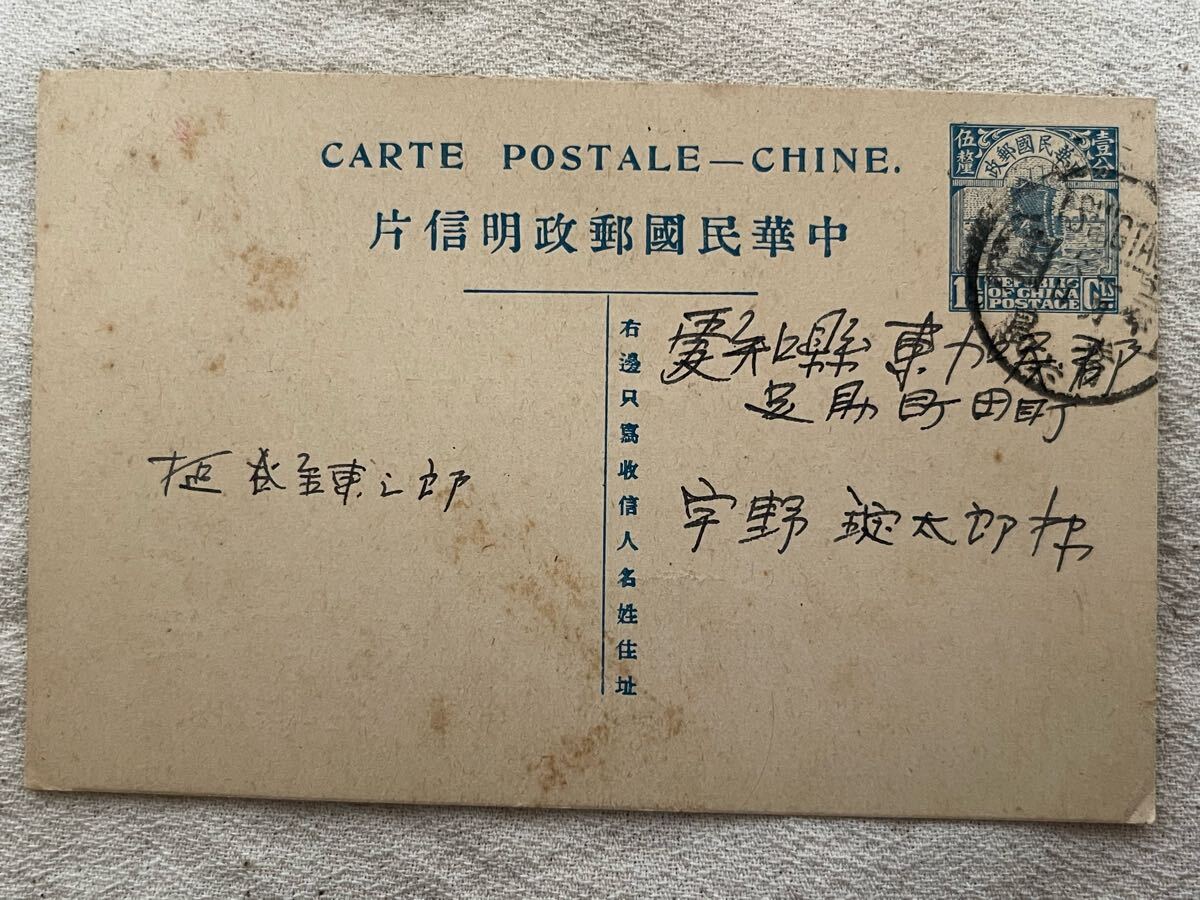 CARTE POSTALE—CHINE.
片信明政郵國民華中
伍釐
政郵國民華中
壹分
REPUBLIC
OF CHINA
POSTALE
右邊只寫收信人名姓住址
愛知縣東加茂郡
足助町田町
宇野 太郎様
東之郎